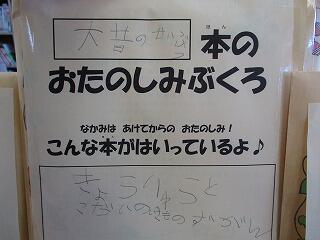 大昔のせいぶつ 本の
ほん
おたのしみぶくろ
なかみは あけてからの おたのしみ!
こんな本がはいっているよ♪
きょうりゅうと
こだいの生きもの ずかん